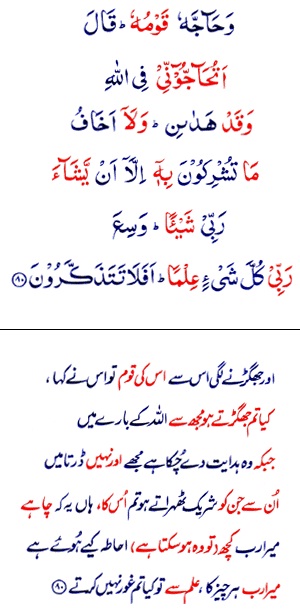 وَحَآجَّهٗ قَوْمُهٗ ؕ قَالَ
اَتُحَآجُّوْٓنِّیْ فِی اللّٰهِ
وَقَدْ هَدٰىنِ ؕ وَلَآ اَخَافُ
مَا تُشْرِكُوْنَ بِهٖۤ اِلَّاۤ اَنْ یَّشَآءَ
رَبِّیْ شَیْـًٔا ؕ وَسِعَ
رَبِّیْ كُلَّ شَیْءٍ عِلْمًا ؕ اَفَلَا تَتَذَكَّرُوْنَ ۝۸۰
اور جھگڑنے لگی اس سے اس کی قوم تو اس نے کہا ،
کیا تم جھگڑتے ہو مجھ سے اللہ کے بارے میں
جبکہ وہ ہدایت دے چُکا ہے مجھے اور نہیں ڈرتا میں
اُن سے جن کو شریک ٹھہراتے ہو تم اُس کا، ہاں یہ کہ چاہے
میرا رب کچھ (تو وہ ہو سکتا ہے) احاطہ کیے ہُوئے ہے
میرا رب ہر چیز کا ، علم سے تو کیا تم غور نہیں کرتے ۝۸۰